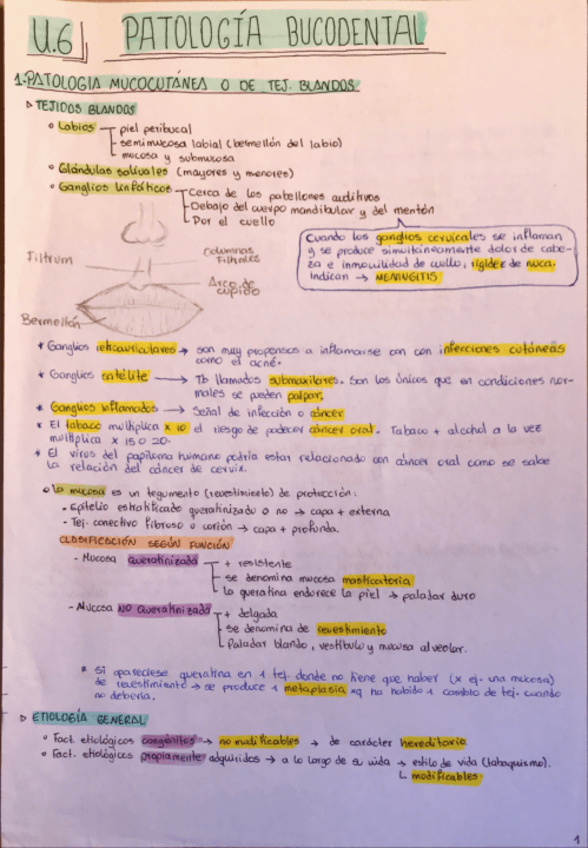 U.6 PATOLOGÍA BUCODENTAL
1.-PATOLOGIA MUCOCUTÁNEA O DE TEJ. BLANDOS
▷ TEJIDOS BLANDOS
◦ Labios piel peribucal
semimucosa labial (bermellón del labio)
mucosa y submucosa
◦ Glándulas salivales (mayores y menores)
◦ Ganglios linfáticos Cerca de los pabellones auditivos
Debajo del cuerpo mandibular y del mentón
Por el cuello
Cuando los ganglios cervicales se inflaman
y se produce simultáneamente dolor de cabe-
za e inmovilidad de cuello, rigidez de nuca.
Indican → MENINGITIS
Filtrum
Columnas
Filtrales
Arco de
cupido
Bermellón
* Ganglios retroauriculares → son muy propensos a inflamarse con con infecciones cutáneas
como el acné.
* Ganglios satélite → Tb llamados submaxilares. Son los únicos que en condiciones nor-
males se pueden palpar.
* Ganglios inflamados → Señal de infección o cáncer
* El tabaco multiplica x 10 el riesgo de padecer cáncer oral. Tabaco + alcohol a la vez
multiplica x 15 o 20.
* El virus del papiloma humano podría estar relacionado con cáncer oral como se sabe
la relación del cáncer de cervix.
◦ La mucosa es un tegumento (revestimiento) de protección:
- Epitelio estratificado queratinizado o no → capa + externa
- Tej. conectivo fibroso o corión → capa + profunda.
CLASIFICACIÓN SEGÚN FUNCIÓN
- Mucosa queratinizada + resistente
se denomina mucosa masticatoria
La queratina endurece la piel → paladar duro
- Mucosa NO queratinizada + delgada
Se denomina de revestimiento
Paladar blando, vestíbulo y mucosa alveolar.
* Si apareciese queratina en 1 tej. donde no tiene que haber (x ej. una mucosa)
de revestimiento → se produce 1 metaplasia xq ha habido 1 cambio de tej. cuando
no debería.
▷ ETIOLOGÍA GENERAL
◦ Fact. etiológicos congénitos → no modificables → de carácter hereditario
◦ Fact. etiológicos propiamente adquiridos → a lo largo de su vida → estilo de vida (tabaquismo).
modificables
1